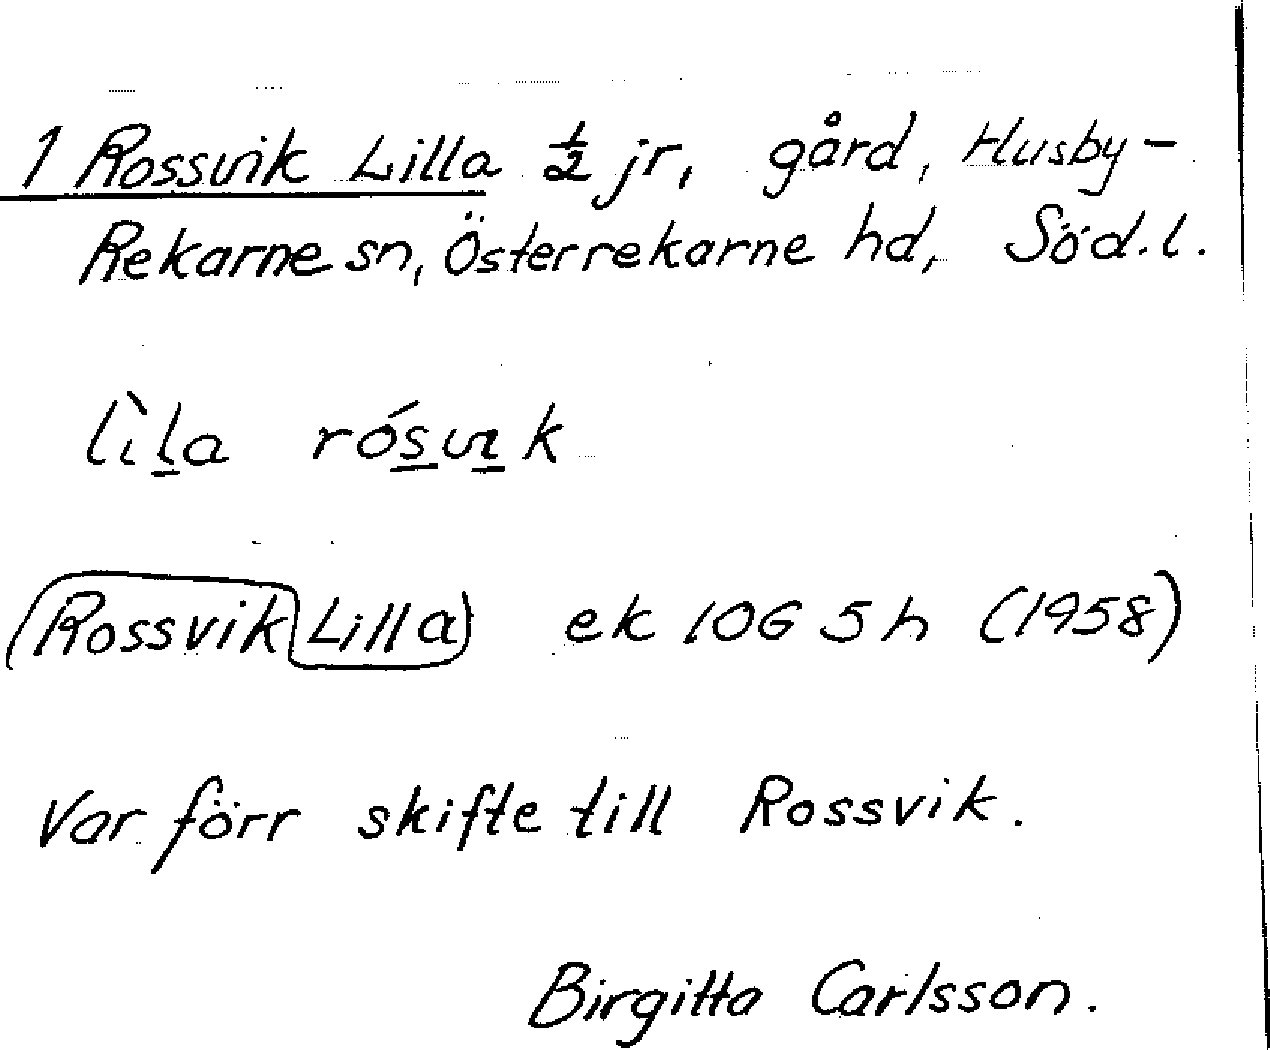 1 Rossvik Lilla ½ jr, gård, Husby-
Rekarne sn, Österrekarne hd, Söd.l.
lìl̲a rós̲vı̲k
Rossvik Lilla ek 10G 5h (1958)
Var förr skifte till Rossvik.
Birgitta Carlsson.